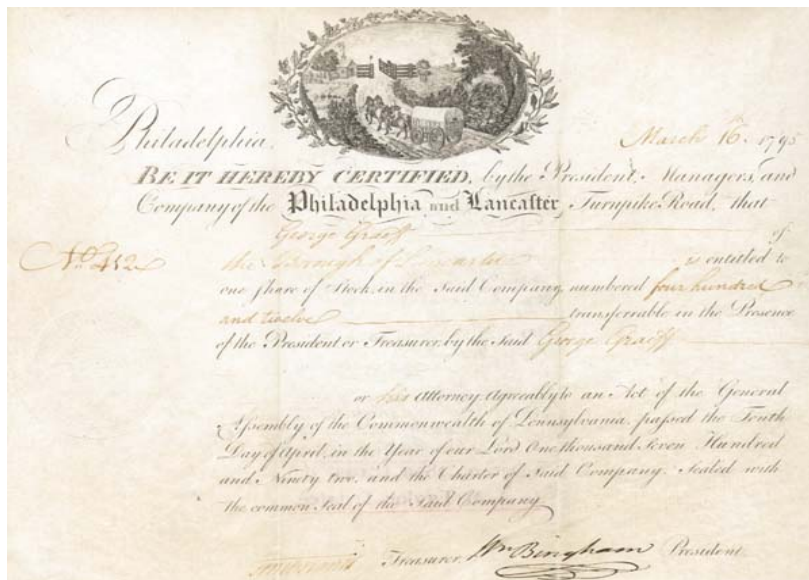 Philadelphia, March 16th 1795
BE IT HEREBY CERTIFIED, by the President, Managers, and
Company of the Philadelphia and Lancaster Turnpike Road, that
George Graeff of
No. 412 the Borough of Lancaster is entitled to
one share of Stock, in the Said Company, numbered four hundred
and twelve transferrable in the Presence
of the President or Treasurer, by the Said George Graeff
or his Attorney, Agreeably to an Act of the General
Assembly of the Commonwealth of Pennsylvania, passed the Tenth
Day of April, in the Year of our Lord One thousand Seven Hundred
and Ninety two, and the Charter of Said Company. Sealed with
the common Seal of the Said Company
Treasurer. Wm Bingham President.